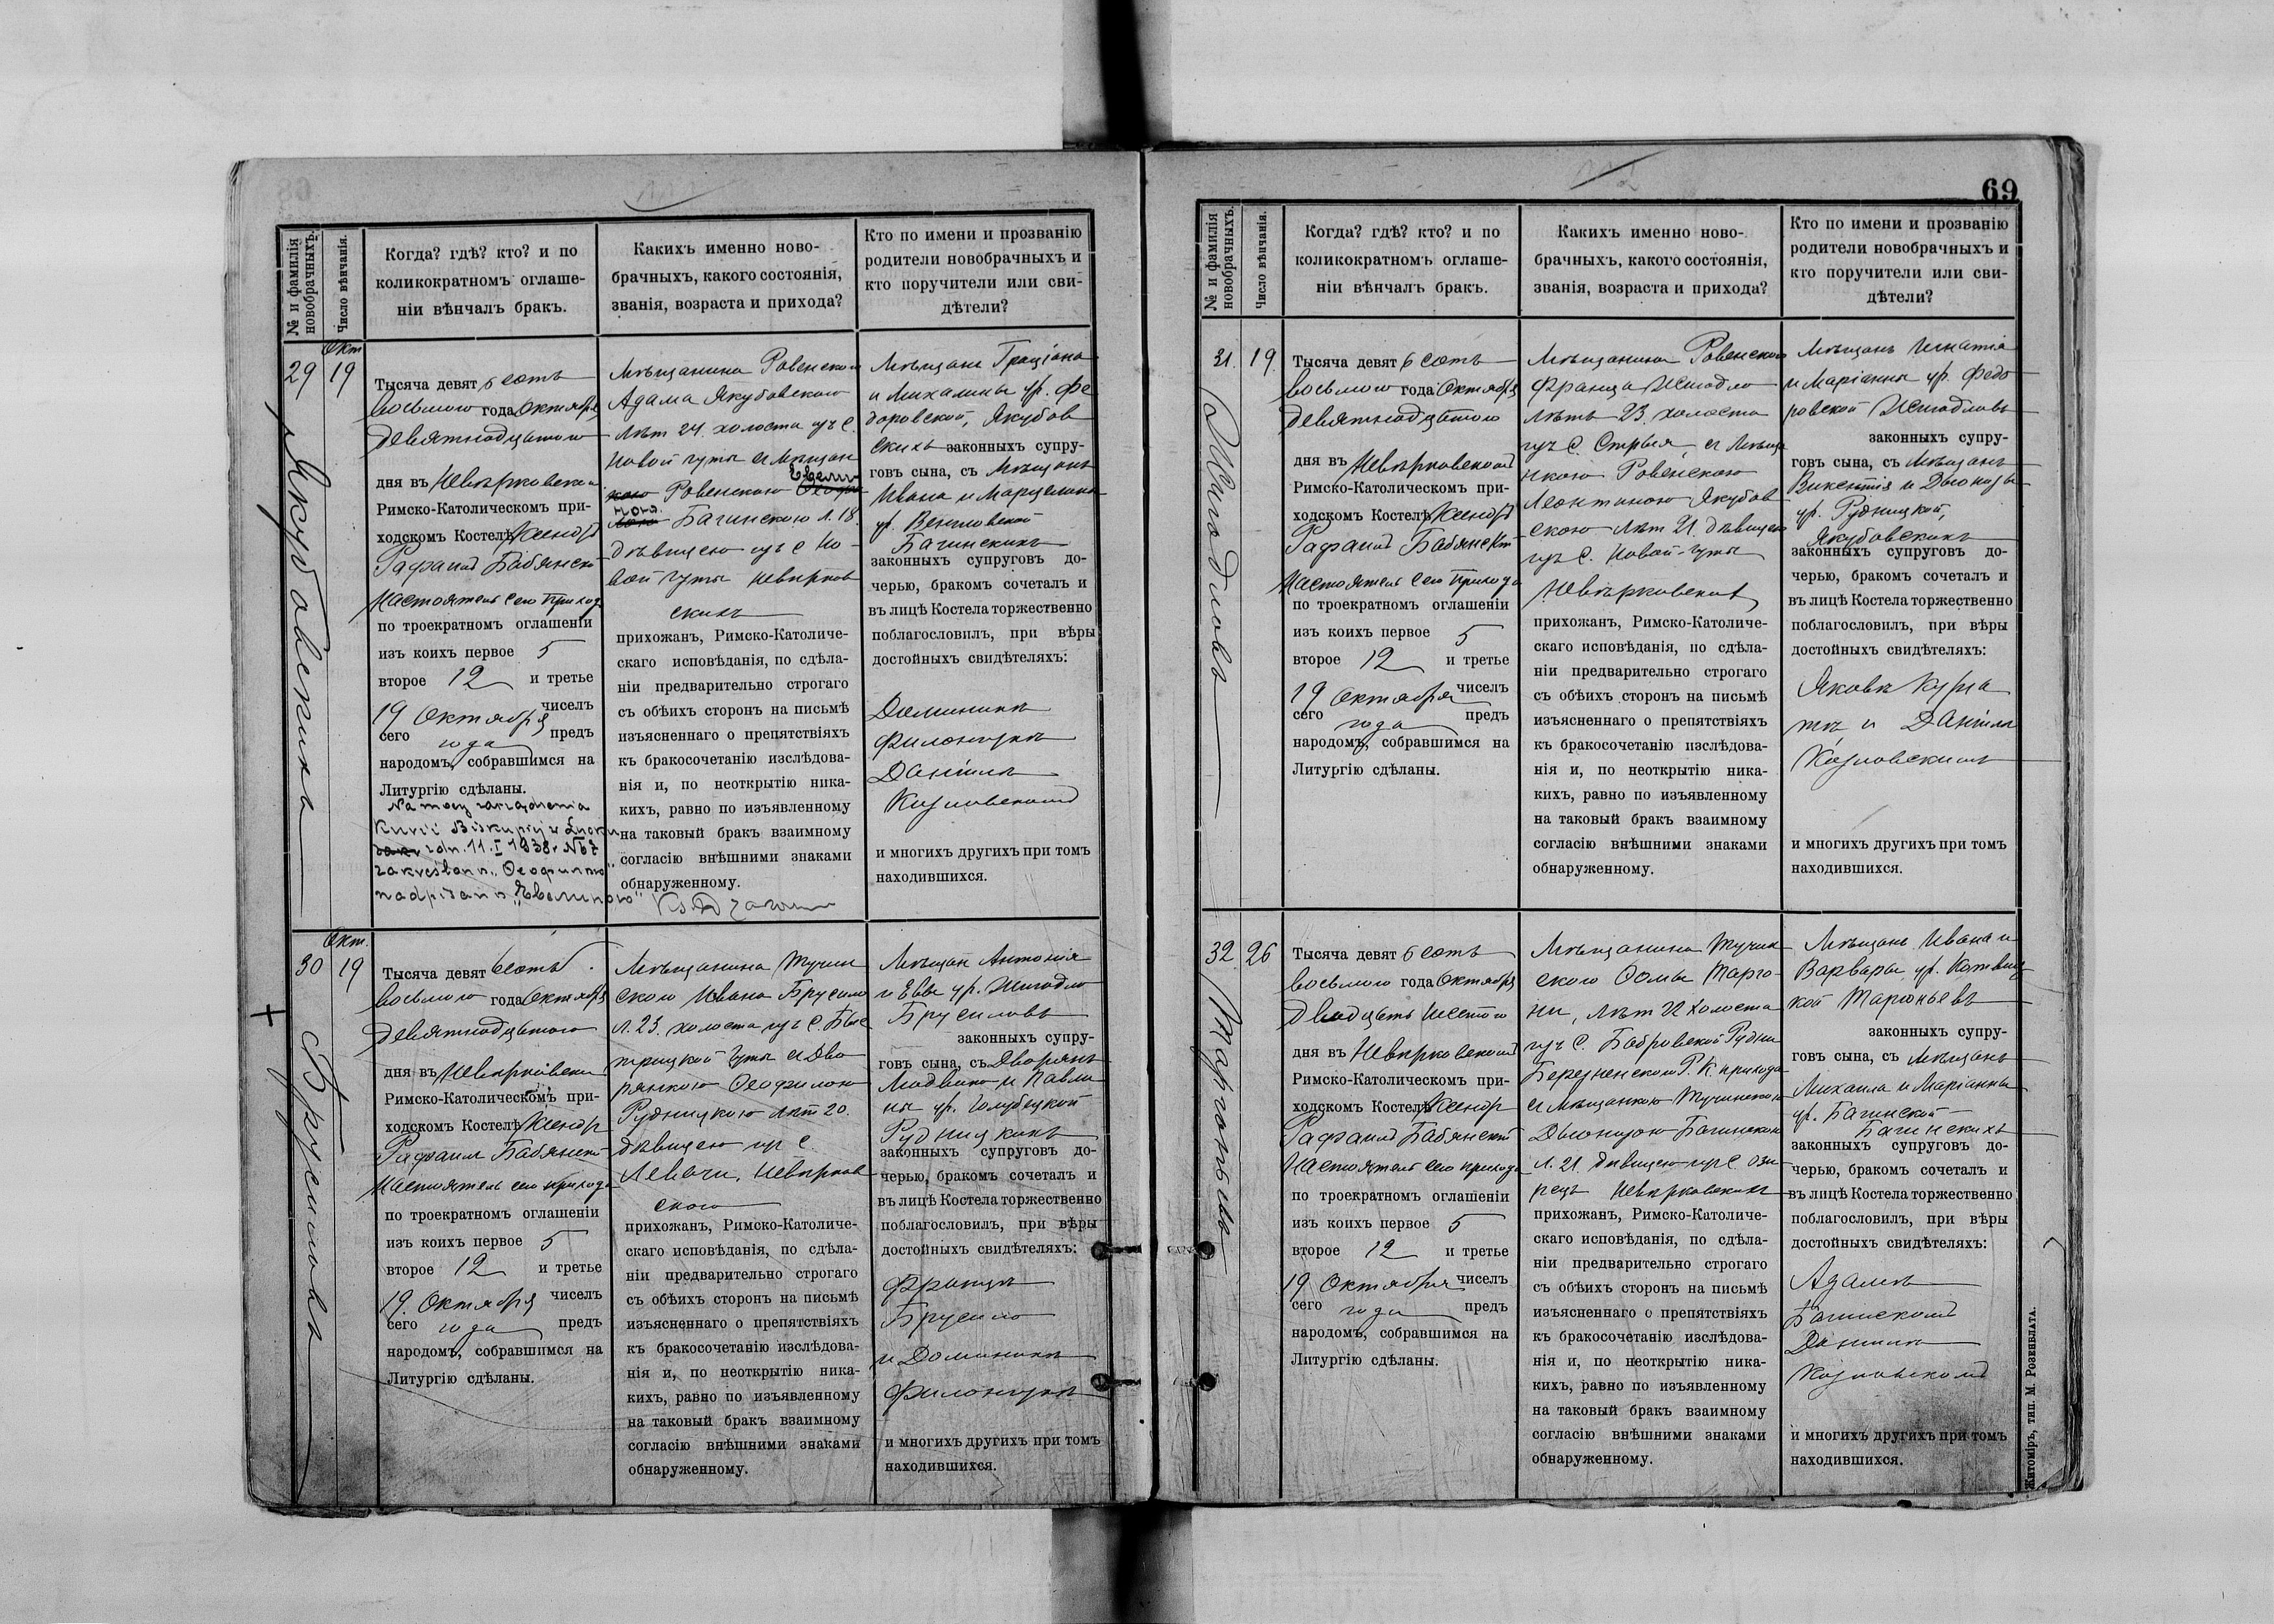 № и фамилія
новобрачныхъ.
Число вѣнчанія.
Когда? гдѣ? кто? и по
коликократномъ оглаше-
ніи вѣнчалъ бракъ.
Какихъ именно ново-
брачныхъ, какого состоянія,
званія, возраста и прихода?
Кто по имени и прозванію
родители новобрачныхъ и
кто поручители или сви-
дѣтели?
Окт
29 19
Якубовскихъ
Тысяча девятьсотъ
восьмого года Октября
девятнадцатого
дня въ Невѣрковском
Римско-Католическомъ при-
ходскомъ Костелѣ Ксендз
Рафаилъ Бабянскій
Настоятель сего прихода
по троекратномъ оглашеніи
изъ коихъ первое 5
второе 12 и третье
19 Октября чиселъ
сего года предъ
народомъ, собравшимся на
Литургію сдѣланы.
Na mocy zarządzenia
Kurii Biskupiej w Łucku
z dn. 11.I 1938 r. № 67
zakreślono „Теофилою”
nadpisano „Эвелиною”
Мѣщанина Ровенского
Адама Якубовского
лѣт 24. холоста изъ с.
Новой Гуты съ Мѣщан
Эвели-
кою Ровенскою
ною
Багинскою л. 18.
дѣвицею изъ с Но-
вой Гуты Невѣрков
скихъ
прихожанъ, Римско-Католиче-
скаго исповѣданія, по сдѣла-
ніи предварительно строгаго
съ обѣихъ сторонъ на письмѣ
изъясненнаго о препятствіяхъ
къ бракосочетанію изслѣдова-
нія и, по неоткрытію ника-
кихъ, равно по изъявленному
на таковый бракъ взаимному
согласію внѣшними знаками
обнаруженному.
Мѣщанъ Граціана
и Михалины ур. Фе
доровской, Якубов
скихъ законныхъ супру-
говъ сына, съ Мѣщанъ
Ивана и Марцелины
ур. Венгловской
Багинскихъ
законныхъ супруговъ до-
черью, бракомъ сочеталъ и
въ лицѣ Костела торжественно
поблагословилъ, при вѣры
достойныхъ свидѣтеляхъ:
Доминикъ
Филонзукъ
Даніилъ
Козловскомъ
и многихъ другихъ при томъ
находившихся.
Окт.
30 19
Брусиловъ
Тысяча девятьсотъ
восьмого года Октября
девятнадцатого
дня въ Невѣрковском
Римско-Католическомъ при-
ходскомъ Костелѣ Ксендз
Рафаилъ Бабянскій
Настоятель сего прихода
по троекратномъ оглашеніи
изъ коихъ первое 5
второе 12 и третье
19. Октября чиселъ
сего года предъ
народомъ, собравшимся на
Литургію сдѣланы.
Мѣщанина Тучин
ского Ивана Брусило
л. 23. холоста изъ с. Быс
трицкой Гуты съ Дво
рянкою Теофилою
Рудницкою лѣт 20.
дѣвицею изъ с.
Левачи, Невѣрков
ского
прихожанъ, Римско-Католиче-
скаго исповѣданія, по сдѣла-
ніи предварительно строгаго
съ обѣихъ сторонъ на письмѣ
изъясненнаго о препятствіяхъ
къ бракосочетанію изслѣдова-
нія и, по неоткрытію ника-
кихъ, равно по изъявленному
на таковый бракъ взаимному
согласію внѣшними знаками
обнаруженному.
Мѣщан Антонія
и Эвы ур. Шигодло
Брусиловъ
законныхъ супру-
говъ сына, съ Дворянъ
Людвика и Павли
ны ур. Голубецкой
Рудницкихъ
законныхъ супруговъ до-
черью, бракомъ сочеталъ и
въ лицѣ Костела торжественно
поблагословилъ, при вѣры
достойныхъ свидѣтеляхъ:
Францъ
Брусило
и Доминикъ
Филонзукъ
и многихъ другихъ при томъ
находившихся.
69
№ и фамилія
новобрачныхъ.
Число вѣнчанія.
Когда? гдѣ? кто? и по
коликократномъ оглаше-
ніи вѣнчалъ бракъ.
Какихъ именно ново-
брачныхъ, какого состоянія,
званія, возраста и прихода?
Кто по имени и прозванію
родители новобрачныхъ и
кто поручители или сви-
дѣтели?
31. 19.
Шигодловъ
Тысяча девятьсотъ
восьмого года Октября
девятнадцатого
дня въ Невѣрковскомъ
Римско-Католическомъ при-
ходскомъ Костелѣ Ксендз
Рафаилъ Бабянскій
Настоятель сего прихода
по троекратномъ оглашеніи
изъ коихъ первое 5
второе 12 и третье
19 Октября чиселъ
сего года предъ
народомъ, собравшимся на
Литургію сдѣланы.
Мѣщанина Ровенского
Франца Шигодло
лѣтъ 23. холоста
изъ с. Стрыя, съ Мѣща
нкою Ровенскою
Леонтиною Якубов
скою лѣт 21. дѣвицею
изъ с. Новой-Гуты
Невѣрковскихъ
прихожанъ, Римско-Католиче-
скаго исповѣданія, по сдѣла-
ніи предварительно строгаго
съ обѣихъ сторонъ на письмѣ
изъясненнаго о препятствіяхъ
къ бракосочетанію изслѣдова-
нія и, по неоткрытію ника-
кихъ, равно по изъявленному
на таковый бракъ взаимному
согласію внѣшними знаками
обнаруженному.
Мѣщанъ Игнатія
и Маріанны ур. Федо
ровской Шигодловъ
законныхъ супру-
говъ сына, съ Мѣщанъ
Викентія и Діонизы
ур. Рудницкой,
Якубовскихъ
законныхъ супруговъ до-
черью, бракомъ сочеталъ и
въ лицѣ Костела торжественно
поблагословилъ, при вѣры
достойныхъ свидѣтеляхъ:
Яковъ
и Даніилъ
Козловскимъ
и многихъ другихъ при томъ
находившихся.
32. 26
Таргоньевъ
Тысяча девятьсотъ
восьмого года Октября
двадцать шестого
дня въ Невѣрковскомъ
Римско-Католическомъ при-
ходскомъ Костелѣ Ксендз
Рафаилъ Бабянскій
Настоятель сего прихода
по троекратномъ оглашеніи
изъ коихъ первое 5
второе 12 и третье
19 Октября чиселъ
сего года предъ
народомъ, собравшимся на
Литургію сдѣланы.
Мѣщанина Тучин
ского Фомы Тарго-
ни, лѣт 22 холоста
изъ с. Бобровской Рудни
Березненского Р. К. прихода
съ Мѣщанкою Тучинскою
Діонизою Багинскою
л. 21. дѣвицею изъ с. Ози
рецъ Невѣрковскихъ
прихожанъ, Римско-Католиче-
скаго исповѣданія, по сдѣла-
ніи предварительно строгаго
съ обѣихъ сторонъ на письмѣ
изъясненнаго о препятствіяхъ
къ бракосочетанію изслѣдова-
нія и, по неоткрытію ника-
кихъ, равно по изъявленному
на таковый бракъ взаимному
согласію внѣшними знаками
обнаруженному.
Мѣщанъ Ивана и
Варвары ур.
кой Таргоньевъ
законныхъ супру-
говъ сына, съ Мѣщанъ
Михаила и Маріанны
ур. Багинской
Багинскихъ
законныхъ супруговъ до-
черью, бракомъ сочеталъ и
въ лицѣ Костела торжественно
поблагословилъ, при вѣры
достойныхъ свидѣтеляхъ:
Адамъ
Багинскомъ
Даніилъ
Козловскомъ
и многихъ другихъ при томъ
находившихся.
Житоміръ, тип. М. Розенблата.